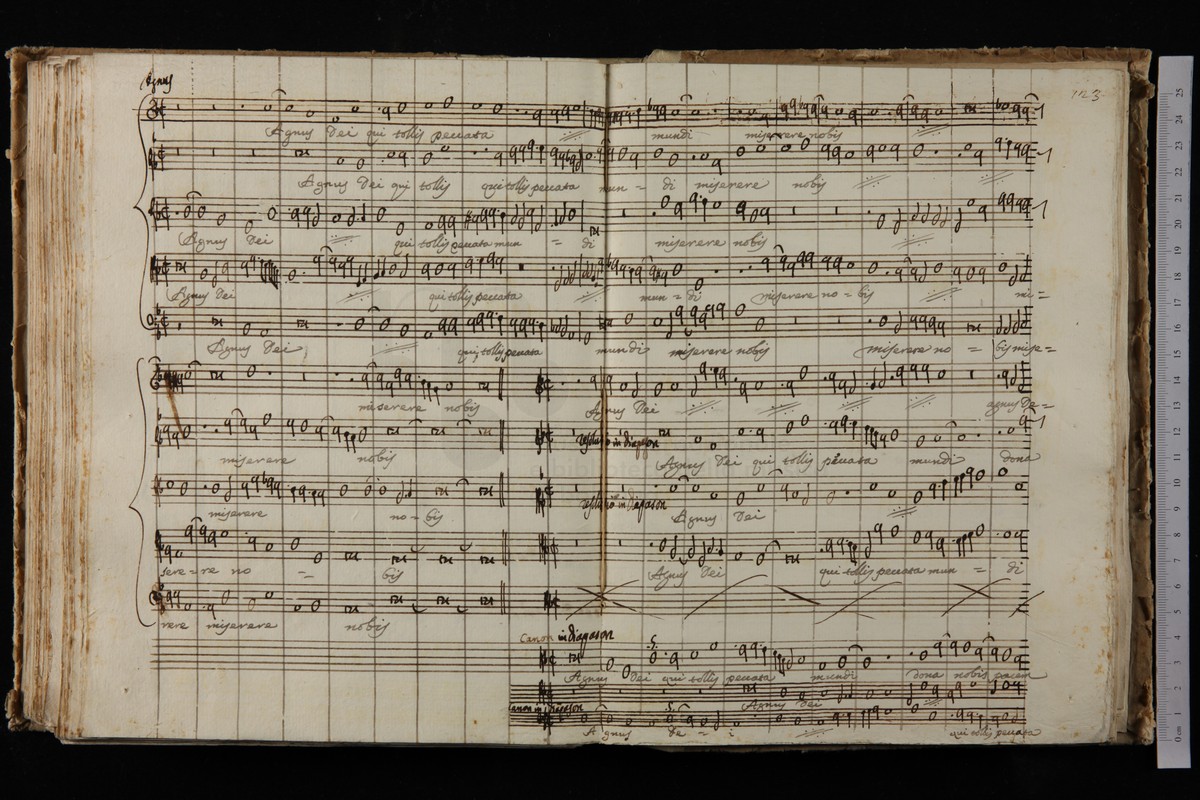 Agnus
123
Agnus Dei qui tollis peccata mundi miserere nobis
Agnus Dei qui tollis qui tollis peccata mun = di miserere nobis
Agnus Dei qui tollis peccata mun = di miserere nobis
Agnus Dei qui tollis peccata mun = di miserere no = bis mi =
Agnus Dei qui tollis peccata mundi miserere nobis miserere no = bis mise =
miserere nobis Agnus Dei agnus De =
resolutio in diapason
miserere nobis Agnus Dei qui tollis peccata mundi dona
resolutio in diapason
miserere no = bis Agnus Dei
sere = re no = bis Agnus Dei qui tollis peccata mun = di
rere miserere nobis
Canon in diapason
Agnus Dei qui tollis peccata mundi dona nobis pacem
Canon in diapason Agnus Dei
Agnus De = i qui tollis peccata
0 cm 1 2 3 4 5 6 7 8 9 10 11 12 13 14 15 16 17 18 19 20 21 22 23 24 25